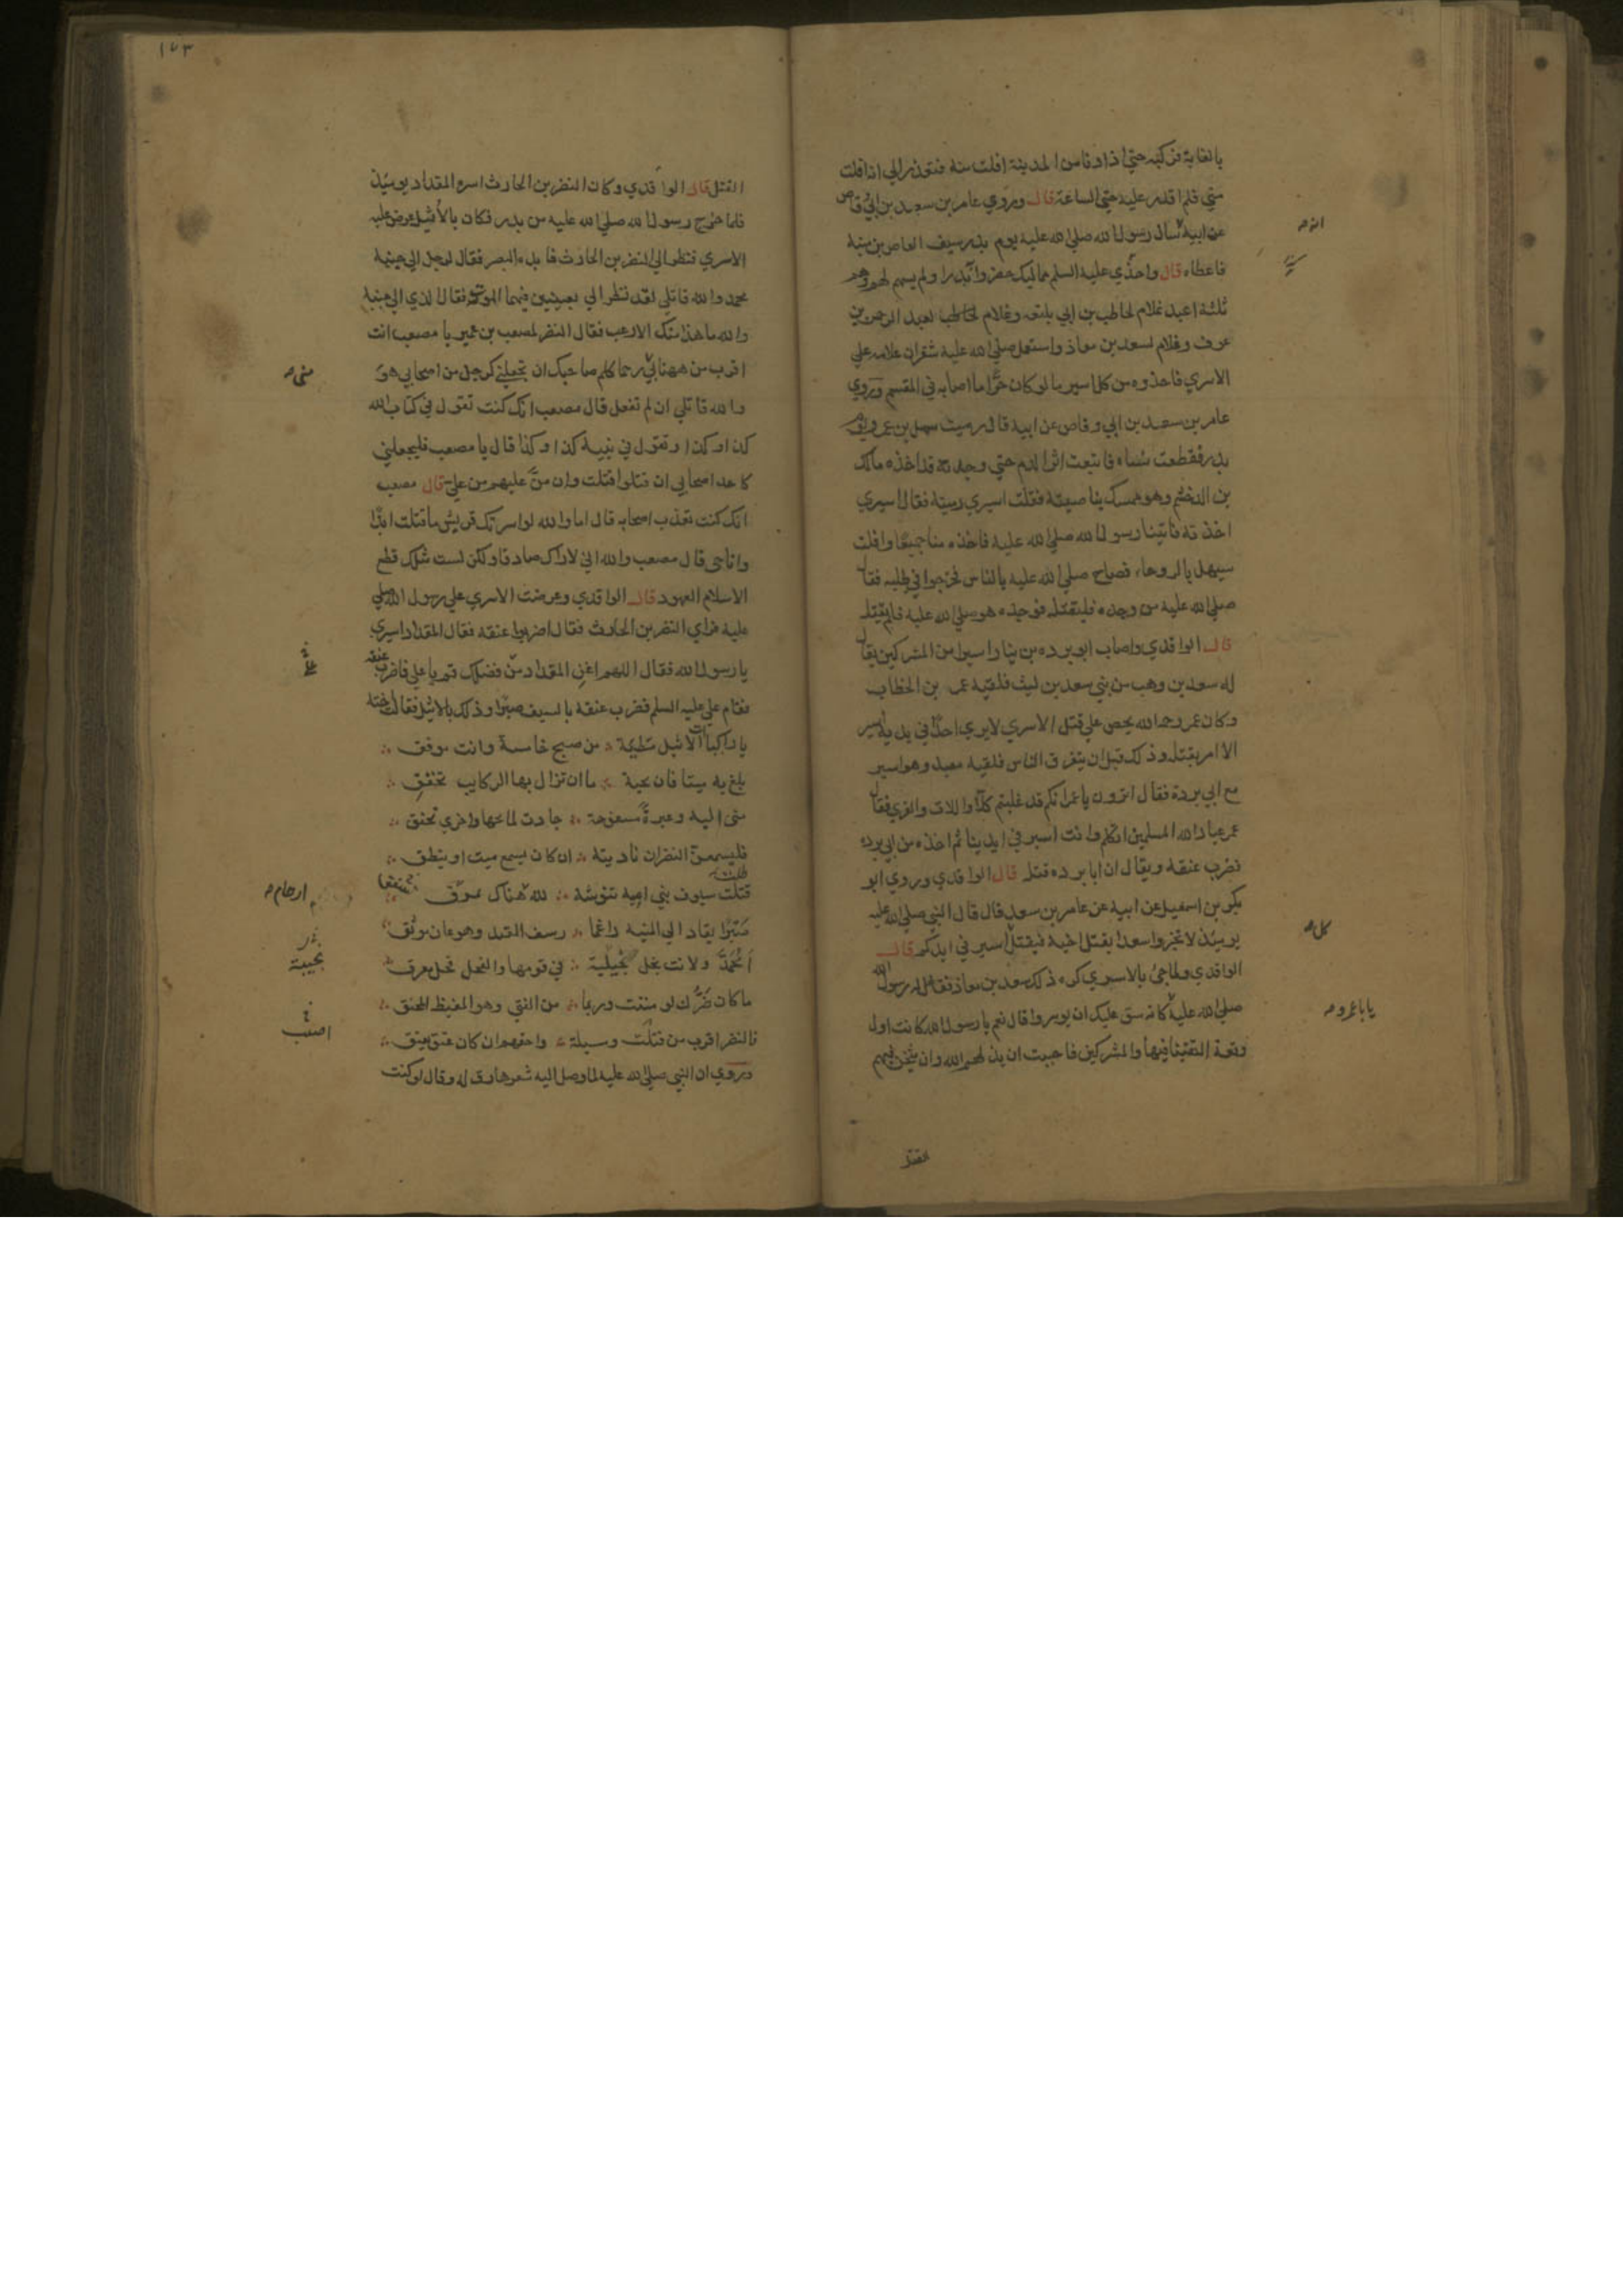 بالغابة فركبه حتي اذا دنا من المدينة افلت منه فتعذر الي انه افلت
مني فلم اقدر عليه حتي الساعة قال وروي عامر بن سعد بن ابي وقاص
عن ابيه سال رسول الله صلي الله عليه يوم بدر سيف العاص بن منبه
فاعطاه قال واحذي عليه السلم مماليك حضروا بدرا ولم يسهم لهم وهم
ثلثة اعبد غلام لحاطب بن ابي بلتعه وغلام لعبد الرحمن بن
عوف وغلام لسعد بن معاذ واستعمل صلي الله عليه شقران غلامه علي
الاسري فاحذوه من كل اسير ما لو كان حرا ما اصابه في المقسم وروي
عامر بن سعد بن ابي وقاص عن ابيه قال رميت سهيل بن عمرو يوم
بدر فقطعت نساه فاتبعت اثر الدم حتي وجدته قد اخذه مالك
بن الدخشم وهو ممسك بناصيته فقلت اسيري رميته فقال اسيري
اخذته فاتينا رسول الله صلي الله عليه فاخذه منا جميعا وافلت
سهيل بالروحاء فصاح صلي الله عليه بالناس فخرجوا في طلبه فقال
صلي الله عليه من وجده فليقتله فوجده هو صلي الله عليه فلم يقتله
قال الواقدي واصاب ابو برده بن نيار اسيرا من المشركين يقال
له سعد بن وهب من بني سعد بن ليث فلقيه عمر بن الخطاب
وكان عمر رحمه الله يحض علي قتل الاسري لا يري احدا في يديه اسير
الا امر بقتله وذلك قبل ان يتفرق الناس فلقيه معبد وهو اسير
مع ابي بردة فقال اترون يا عمر انكم قد غلبتم كلا واللات والعزي فقال
عمر عباد الله المسلمين اتكلم وانت اسير في ايدينا ثم اخذه من ابي برده
فضرب عنقه ويقال ان ابا برده قتله قال الواقدي وروي ابو
بكر بن اسمعيل عن ابيه عن عامر بن سعد قال قال النبي صلي الله عليه
يوميئذ لا تخبروا سعدا بقتل اخيه فيقتل اسير في ايديكم قال
الواقدي ولما جئ بالاسري كره ذلك سعد بن معاذ فقال له رسول الله
صلي الله عليه كانه شق عليك ان يوسروا قال نعم يا رسول الله كانت اول
وقعة التقينا فيها والمشركين فاحببت ان يذلهم الله وان يثخن فيهم
القتل
انه
كل
يابا عمرو
١٧٣
القتل قال الواقدي وكان النضر بن الحارث اسره المقداد يوميئذ
فلما خرج رسول الله صلي الله عليه من بدر فكان بالاثيل عرض عليه
الاسري فنظر الي النضر بن الحارث فابده البصر فقال لرجل الي جنبه
محمد والله قاتلي لقد نظر الي بعينين فيهما الموت فقال الذي الي جنبه
والله ما هذا منك الا رعب فقال النضر لمصعب بن عمير يا مصعب انت
اقرب من ههنا بي رحما كلم صاحبك ان يجعلني كرجل من اصحابي هو
والله قاتلي ان لم تفعل قال مصعب انك كنت تقول في كتاب الله
كذا وكذا وتقول في نبيه كذا وكذا قال يا مصعب فليجعلني
كاحد اصحابي ان قتلوا قتلت وان من عليهم من علي قال مصعب
انك كنت تعذب اصحابه قال اما والله لو اسرتك قريش ما قتلت ابدا
وانا حي قال مصعب والله اني لاراك صادقا ولكن لست مثلك قطع
الاسلام العهود قال الواقدي وعرضت الاسري علي رسول الله صلي
عليه فراي النضر بن الحارث فقال اضربوا عنقه فقال المقداد اسيري
يا رسول الله فقال اللهم اغن المقداد من فضلك قم يا علي فاضرب عنقه
فقام علي عليه السلم فضرب عنقه بالسيف صبرا وذلك بالاثيل فقالت اخته
يا راكبا ان الاثيل مظنة ∴ من صبح خامسة وانت موفق ∴
بلغ به ميتا فان تحية ∴ ما ان تزال بها الركايب تخفق ∴
مني اليه وعبرة مسفوحة ∴ جادت لمائحها واخري تخنق ∴
فليسمعن النضر ان ناديته ∴ ان كان يسمع ميت او ينطق ∴
ظلت سيوف بني ابيه تنوشه ∴ لله هناك تمزق
صبرا يقاد الي المنيه راغما ∴ رسف القيد وهو عان موثق
امحمد ولانت نجل نجيبة ∴ في قومها والفحل فحل معرق
ما كان ضرك لو مننت وربما ∴ من الفتي وهو المغيظ المحنق ∴
فالنضر اقرب من قتلت وسيلة ∴ واحقهم ان كان عتق يعتق ∴
وروي ان النبي صلي الله عليه لما وصل اليه شعرها رق له وقال لو كنت
مني
ارحام
نجيبة
اصبت